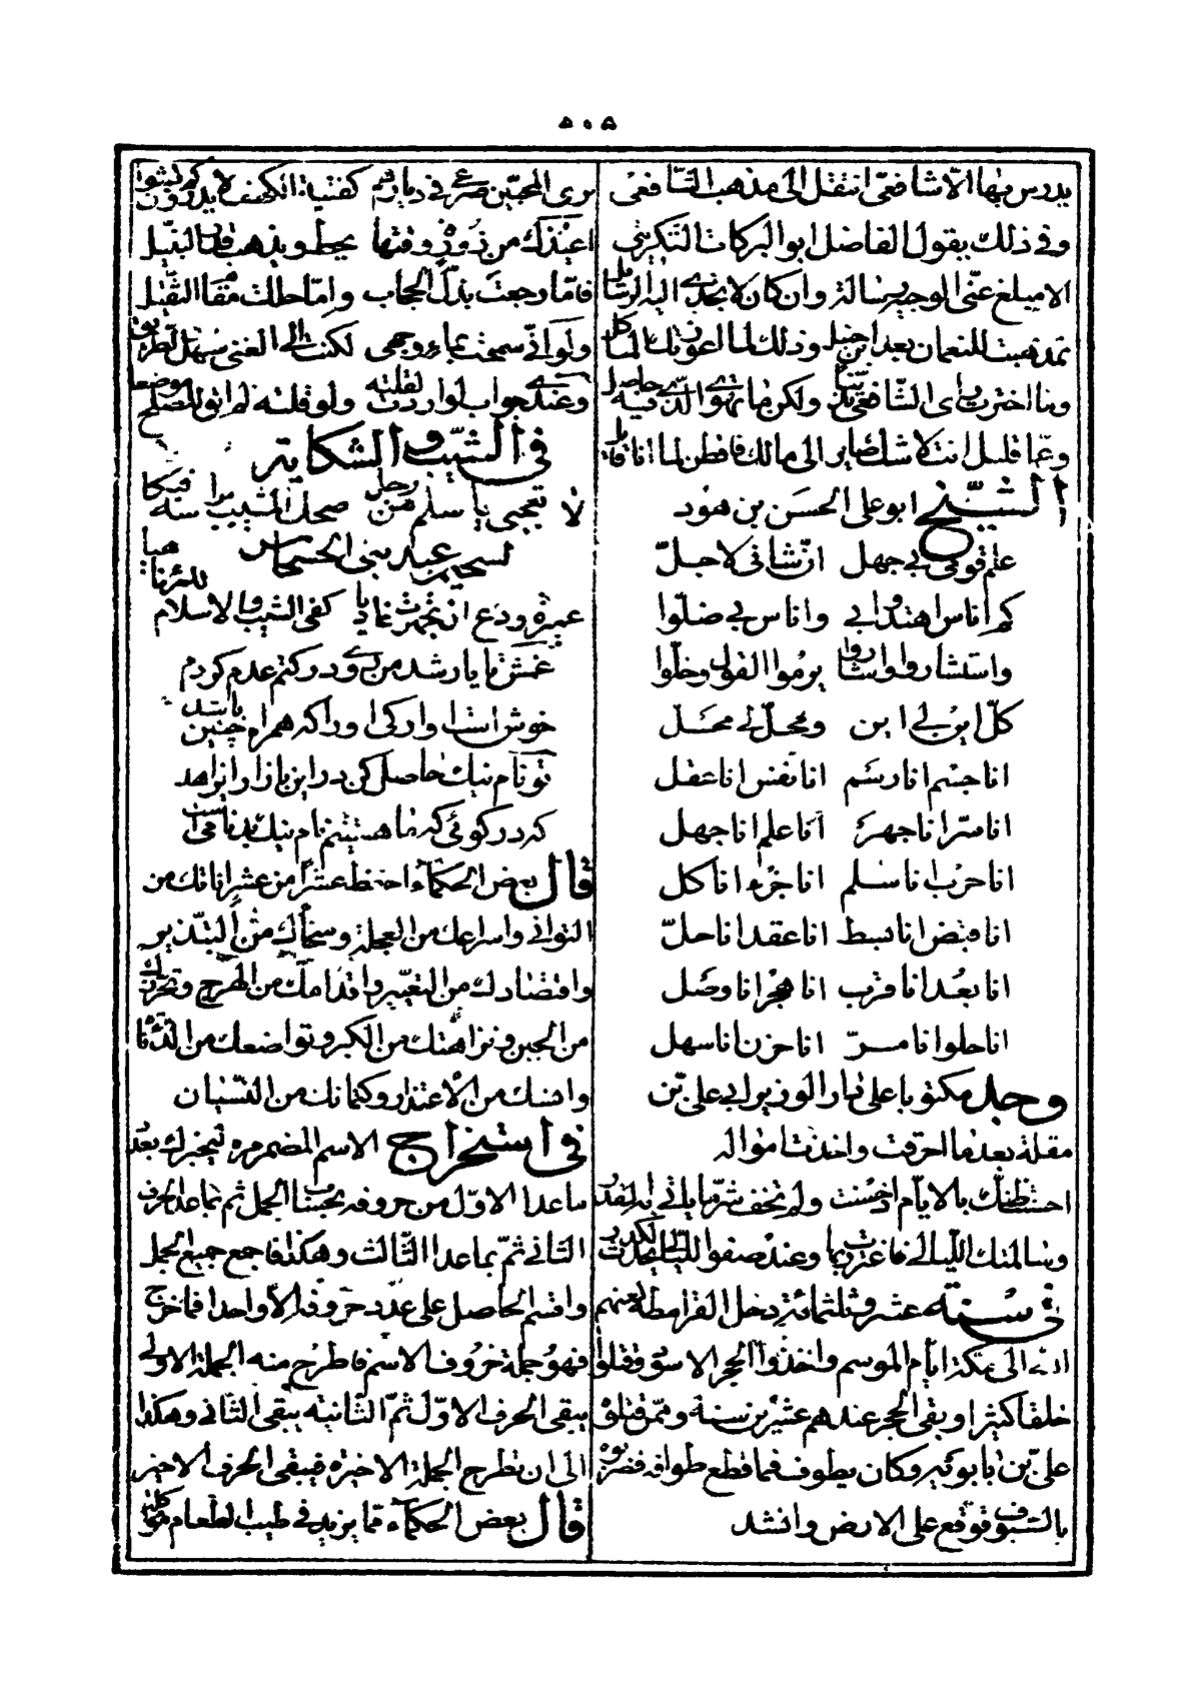 ٥٠٥
يدرس بها الا شافعى انتقل الى مذهب الشافعى
وفى ذلك يقول الفاضل ابو البركات التكريتى
الا مبلغ عنى الوجيه رسالة وان كان لا تجدى اليه الرسائل
تمذهبت للنعمان بعد ابن حنبل وذلك لما اعوزتك المآكل
وما اخترت راى الشافعى تدينا ولكن ما تهوى الذى منه حاصل
وعما قليل انت لا شك صاير الى مالك فافطن لما انا قايل
الشيخ ابو على الحسن بن هود
علم قومى بى جهل ان شانى لاجل
كم اناس اهتدوا بى واناس بى ضلوا
واستشاروا واشاروا يرموا القول وخلوا
كل اين لى ابن ومحل لى محل
انا جسم انا رسم انا نفس انا عقل
انا سر انا جهر انا علم انا جهل
انا حرب انا سلم انا جزء انا كل
انا قبض انا بسط انا عقد انا حل
انا بعد انا قرب انا هجر انا وصل
انا حلو انا مر انا حزن انا سهل
وجد مكتوبا على دار الوزير ابى على بن
مقلة بعد ما احرقت واخذت امواله
احسنت ظنك بالايام اذ حسنت ولم تخف شر ما ياتى به القدر
وسالمتك الليالى فاغتررت بها وعند صفو الليالى يحدث الكدر
فى سنة عشر وثلثمائة دخل القرامطة لعنهم
الله الى مكة ايام الموسم واخذوا الحجر الاسود وقتلوا
خلقا كثيرا وبقى الحجر عندهم عشرين سنة وممن قتلوا
على بن بابويه وكان يطوف فما قطع طوافه فضربوه
بالسيوف فوقع على الارض وانشد
ترى المحبين صرعى فى ديارهم كفتية الكهف لا يدرون كم لبثوا
فاما رجعت بذل الحجاب واما حللت مقام الثقيل
ولو انى سمحت بماء وجهى لكنت الى الغنى سهل الطريق
وعندى جواب لو اردت لقلته ولو قلته لم ابق للصلح موضعا
فى الشيب والشكاية
لا تعجبى يا سلم من رجل ضحك المشيب براسه فبكى
لسحيم عبد بنى الحسحاس
عميرة ودع ان تجهزت غاديا كفى الشيب والاسلام للمرء ناهيا
خوش است آوارگى اورا كه همراه چنين باشد
تو نام نيك حاصل كن درين بازار اى زاهد
كه در كوئى كه ما هستيم نام نيك بدنامى است
قال بعض الحكماء احفظ عشرا من عشر اناتك من
التوانى واسراعك من العجلة وسخائك من التبذير
واقتصادك من التقتير واقدامك من الهرج وتحرزك
من الجبن ونزاهتك من الكبر وتواضعك من الدنائة
وانسك من الاغترار وكتمانك من النسيان
فى استخراج الاسم المضمر مره ليخبرك بعد
ما عدا الاول من حروفه بحساب الجمل ثم بما عدا الحرف
الثانى ثم بما عدا الثالث وهكذا فاجمع جميع الجمل
واقسم الحاصل على عدد حروفه الا واحدا فما خرج
فهو جملة حروف الاسم فاطرح منه الجملة الاولى
يبقى الحرف الاول ثم الثانية يبقى الثانى وهكذا
الى ان تطرح الجملة الاخيرة فيبقى الحرف الاخير
قال بعض الحكماء مما يزيد فى طيب الطعام